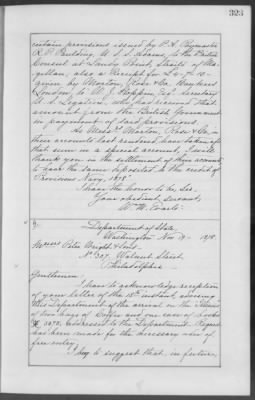 323
certain provisions issued by P. A. Paymaster
R. P. Paulding, U. S. S. Adams, to the British
Consul at Sandy Point, Straits of Ma-
gellan; also a Receipt for
given by Messrs Morton, Rose & Co., Bankers
London, to W. J. Hoppin, Esq., Secretary
U. S. Legation, who had received that
amount from the British Government
in payment of said provisions.
As Messrs. Morton, Rose & Co., in
their accounts last rendered have taken up
that sum in a special account, I will
thank you in the settlement of their accounts
to have the same deposited to the credit of
"Provisions Navy, 1878."
I have the honor to be, Sir,
Your obedient servant,
Wm. M. Evarts.
Department of State,
Washington Nov. 19 1878.
Messrs Peter Wright & Sons.
No. 307, Walnut Street
Philadelphia
Gentlemen:
I have to acknowledge reception
of your letter of the 18th instant advising
this Department of the arrival on the
of two bags of Coffee and one case of books
addressed to the Department. Request
has been made for the necessary order of
free entry.
I beg to suggest that, in future,